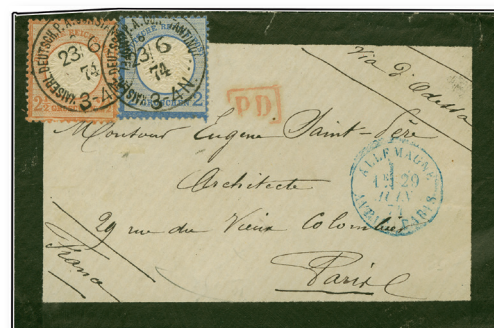 KAISERL. DEUTSCH. P.A. CONSTANTINOPEL
23 6
74
3-4N.
2½
KAISERL. DEUTSCH. P.A. CONSTANTINOPEL
23 6
74
3-4N.
2
Via d'Odessa
PD
Monsieur Eugène Saint-Père
Architecte
29 rue du Vieux Colombier
Paris
Franco
ALLEMAGNE
29
JUIN
74
PARIS